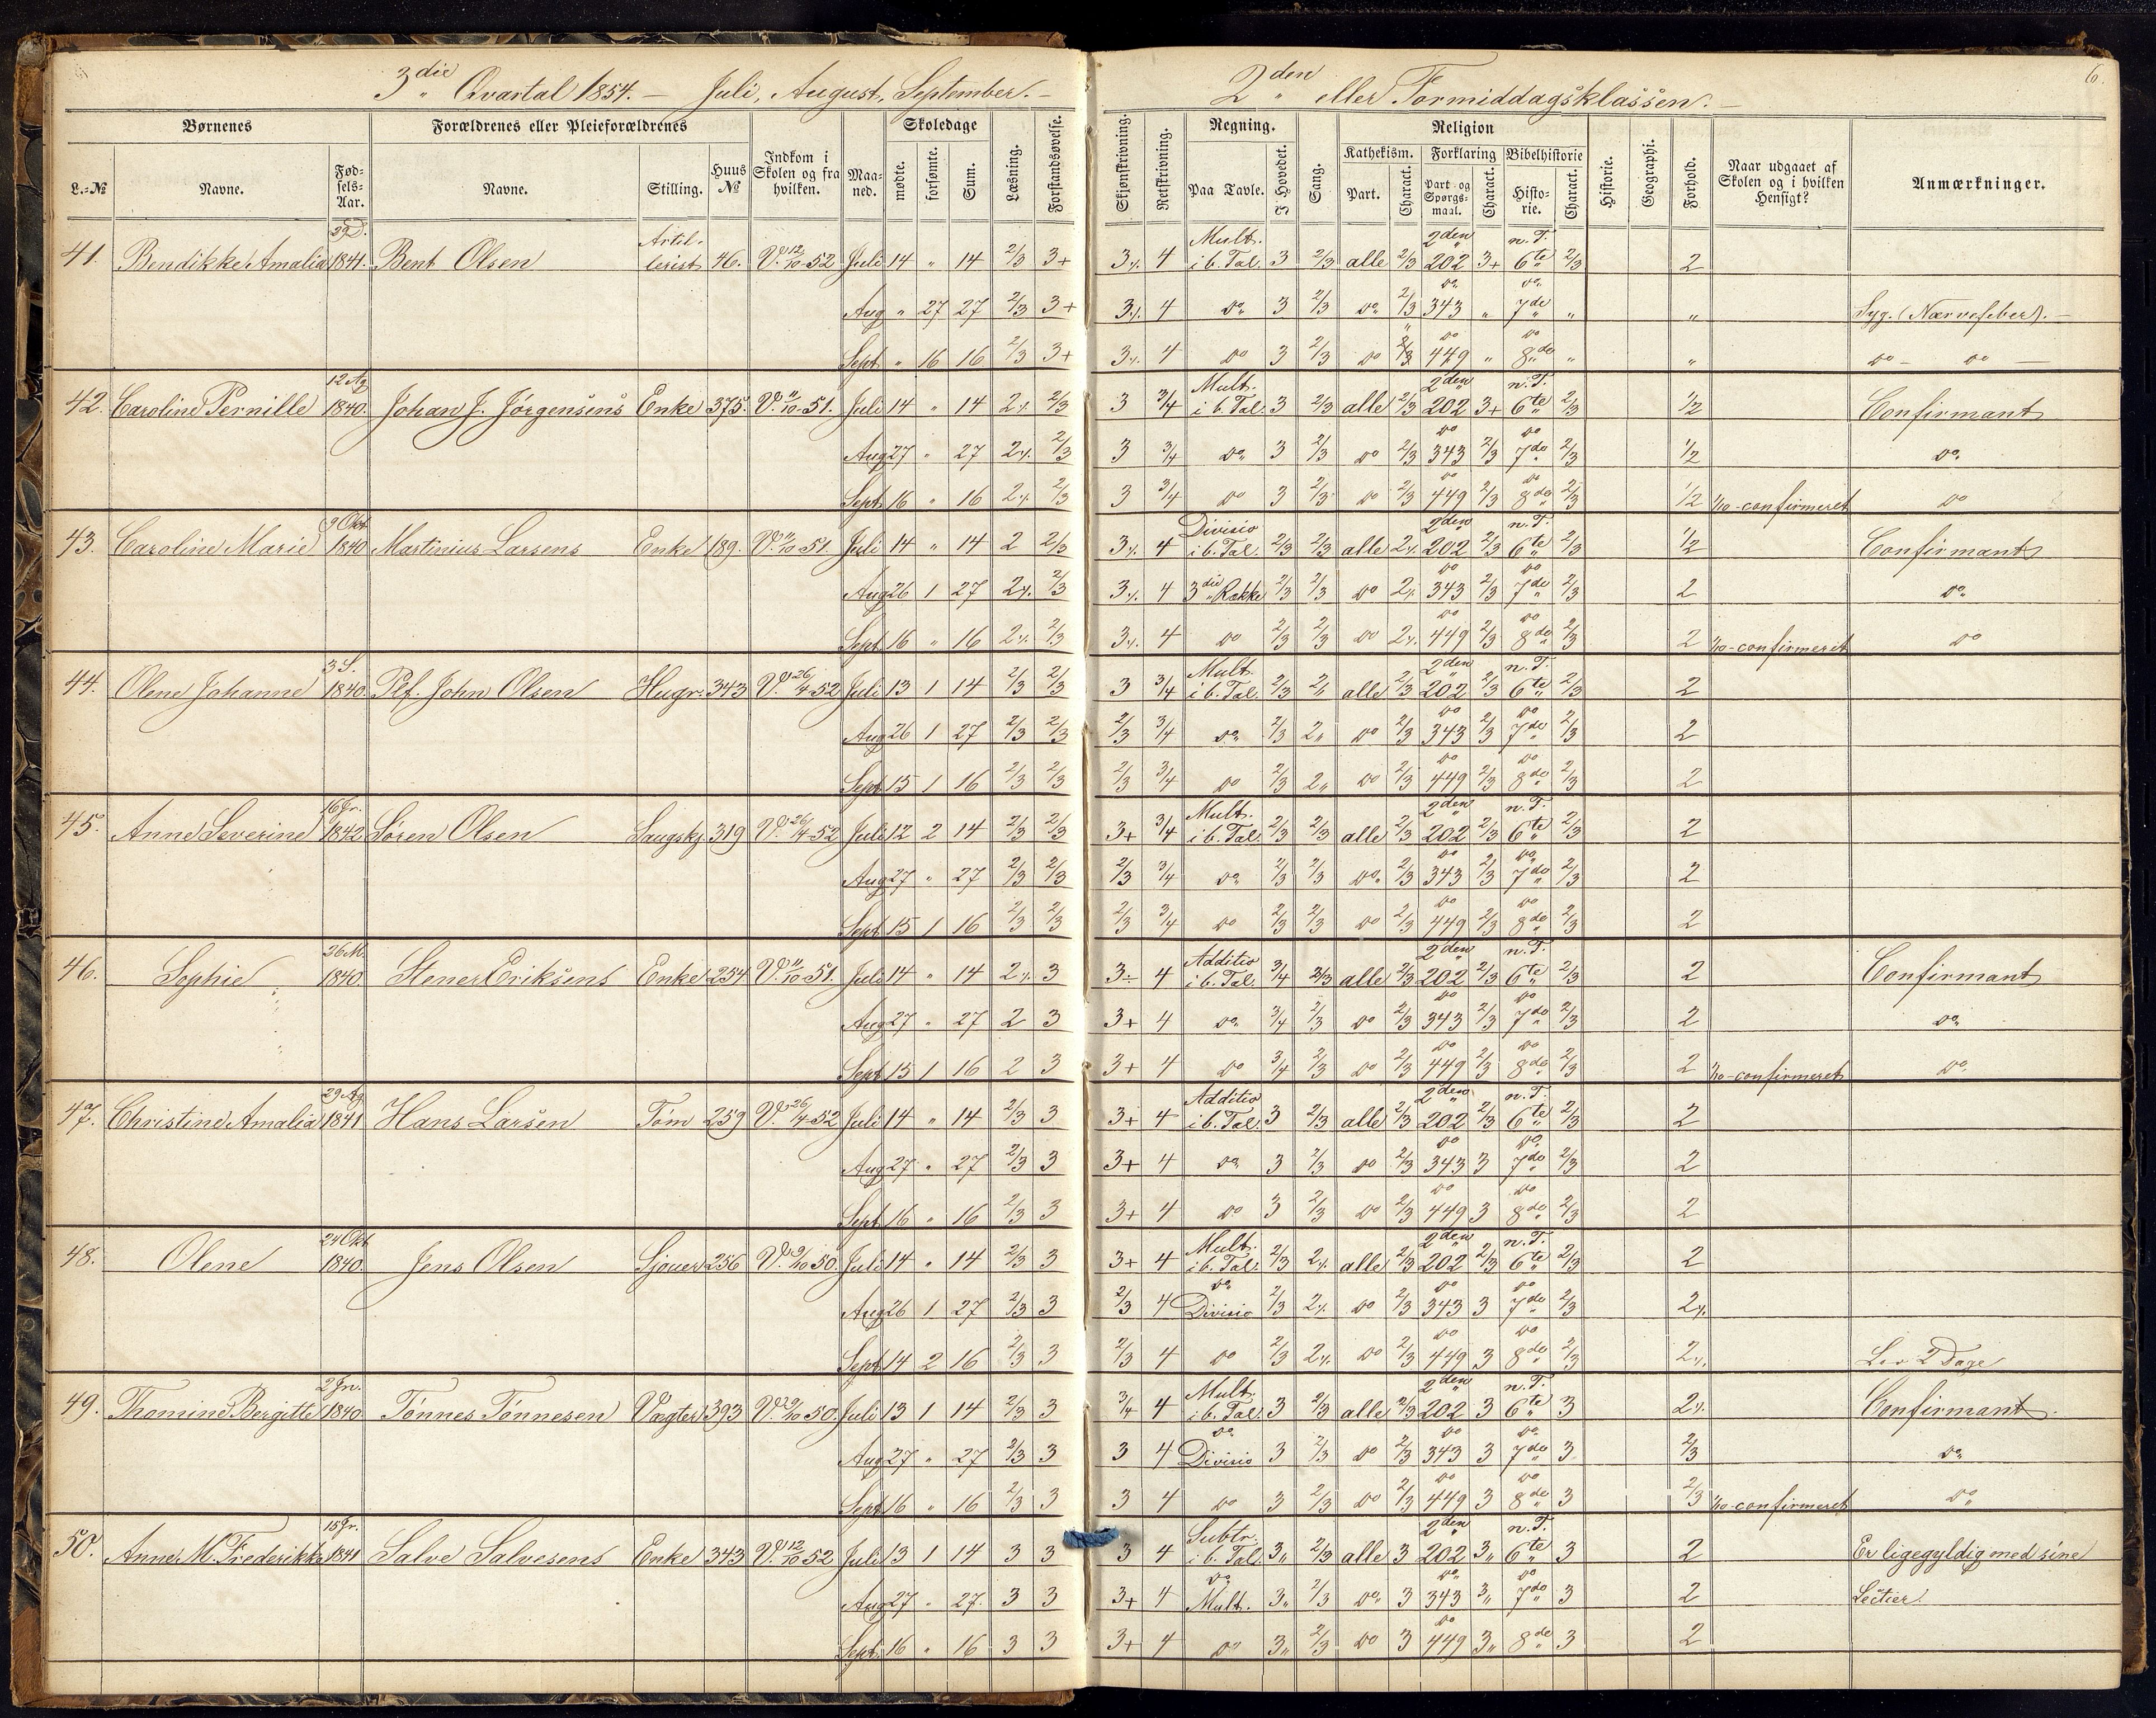 3die Qvartal 1854. — Juli, August, September. —
2den eller Formiddagsklassen. —
6.
Børnenes
Forældrenes eller Pleieforældrenes
Indkom i Skolen og fra hvilken.
Maaned.
Skoledage
Læsning.
Forstandsøvelse.
Skjønskrivning.
Retskrivning.
Regning.
Sang.
Religion
Historie.
Geographi.
Forhold.
Naar udgaaet af Skolen og i hvilken Hensigt?
Anmærkninger.
L.-№
Navne.
Fødsels-Aar.
Navne.
Stilling.
Huus №
mødte.
forsømte.
Sum.
Paa Tavle.
I Hovedet.
Kathekism.
Forklaring
Bibelhistorie
Part.
Charact.
Part og Spørgsmaal.
Charact.
Historie.
Charact.
41. Bendikke Amalia 1841. Bent Olsen Artillerist 46. V. 12/10-52 Juli 14 " 14 2/3 3+ 3 4 Mult. i b. Tal. 3 2/3 alle 2/3 2den 202 3+ n. T. 6te 2/3 2
Aug " 27 27 2/3 3+ 3 4 do 3 2/3 do 2/3 do 343 " do 7de " " Syg. (Nærvefeber). —
Sept " 16 16 2/3 3+ 3 4 do 3 2/3 do 2/3 do 449 " do 8de " " do — do —
42. Caroline Pernille 12 Ag 1840. Johan J. Jørgensens Enke 375. V. 11/10-51. Juli 14 " 14 2 2/3 3 3/4 Mult. i b. Tal. 3 2/3 alle 2/3 2den 202 3+ n. T. 6te 2/3 1/2 Confirmant
Aug 27 " 27 2 2/3 3 3/4 do 3 2/3 do 2/3 do 343 2/3 do 7de 2/3 1/2 do
Sept 16 " 16 2 2/3 3 3/4 do 3 2/3 do 2/3 do 449 2/3 do 8de 2/3 1/2 1/10-confirmeret do
43. Caroline Marie 9 Okt 1840 Martinius Larsens Enke 189. V. 11/10-51. Juli 14 " 14 2 2/3 3 4 Divisio i b. Tal. 2/3 2/3 alle 2 2den 202 2/3 n. T. 6te 2/3 1/2 Confirmant
Aug 26 1 27 2 2/3 3 4 3die Række 2/3 2/3 do 2 do 343 2/3 do 7de 2/3 2 do
Sept 16 " 16 2 2/3 3 4 do 2/3 2/3 do 2 do 449 2/3 do 8de 2/3 2 1/10-confirmeret do
44. Olene Johanne 3 S. 1840. Plf. John Olsen Hugr. 343 V. 26/4-52 Juli 13 1 14 2/3 2/3 3 3/4 Mult. i b. Tal. 2/3 2 alle 2/3 2den 202 2/3 n. T. 6te 2/3 2
Aug 26 1 27 2/3 2/3 2/3 3/4 do 2/3 2 do 2/3 do 343 2/3 do 7de 2/3 2
Sept 15 1 16 2/3 2/3 2/3 3/4 do 2/3 2 do 2/3 do 449 2/3 do 8de 2/3 2
45. Anne Severine 16 Jr. 1842 Søren Olsen Saugskj. 319 V. 26/4-52 Juli 12 2 14 2/3 2/3 3+ 3/4 Mult. i b. Tal. 2/3 2/3 alle 2/3 2den 202 2/3 n. T. 6te 2/3 2
Aug 27 " 27 2/3 2/3 2/3 3/4 do 2/3 2/3 do 2/3 do 343 2/3 do 7de 2/3 2
Sept 15 1 16 2/3 2/3 2/3 3/4 do 2/3 2/3 do 2/3 do 449 2/3 do 8de 2/3 2
46. Sophie 26 M. 1840. Stener Eriksens Enke 254 V. 11/10-51. Juli 14 " 14 2 3 3÷ 4 Additio i b. Tal. 3/4 2/3 alle 2/3 2den 202 2/3 n. T. 6te 2/3 2 Confirmant
Aug 27 " 27 2 3 3+ 4 do 3/4 2/3 do 2/3 do 343 2/3 do 7de 2/3 2 do
Sept 15 1 16 2 3 3+ 4 do 3/4 2/3 do 2/3 do 449 2/3 do 8de 2/3 2 1/10-confirmeret do
47. Christine Amalia 29 Ag 1841 Hans Larsen Tøm 259 V. 26/4-52 Juli 14 " 14 2/3 3 3+ 4 Additio i b. Tal. 3 2/3 alle 2/3 2den 202 2/3 n. T. 6te 2/3 2
Aug 27 " 27 2/3 3 3+ 4 do 3 2/3 do 2/3 do 343 3 do 7de 2/3 2
Sept 16 " 16 2/3 3 3+ 4 do 3 2/3 do 2/3 do 449 3 do 8de 2/3 2
48. Olene 24 Okt 1840. Jens Olsen Sjouer 256 V. 9/10 50. Juli 14 " 14 2/3 3 3+ 4 Mult. i b. Tal. 2/3 2 alle 2/3 2den 202 2/3 n. T. 6te 2/3 2
Aug 26 1 27 2/3 3 2/3 4 do Divisio 2/3 2 do 2/3 do 343 3 do 7de 2/3 2
Sept 14 2 16 2/3 3 2/3 4 do 2/3 2 do 2/3 do 449 3 do 8de 2/3 2 Lov 2 Dage
49. Thomine Bergitte 2 Jn. 1840 Tønnes Tønnesen Vægter 393 V. 9/10 50. Juli 13 1 14 2/3 3 3/4 4 Mult. i b. Tal. 3 2/3 alle 2/3 2den 202 3 n. T. 6te 3 2 Confirmant.
Aug 27 " 27 2/3 3 3 4 do Divisio 3 2/3 do 2/3 do 343 3 do 7de 3 2/3 do
Sept 16 " 16 2/3 3 3 4 do 3 2/3 do 2/3 do 449 3 do 8de 3 2/3 1/10-confirmeret do
50. Anne M. Frederikke 15 Jr. 1841 Salve Salvesens Enke 343 V. 12/10 52 Juli 13 1 14 3 3 3 4 Subtr. i b. Tal. 3 2/3 alle 3 2den 202 3 n. T. 6te 3 2 Er ligegyldig med sine
Aug 27 " 27. 3 3 3+ 4 do Mult. 3 2/3 do 3 do 343 3 do 7de 3 2 Lectier.
Sept. 16 " 16 3 3 3+ 4 do 3 2/3 do 3 do 449 3 8de 3 2